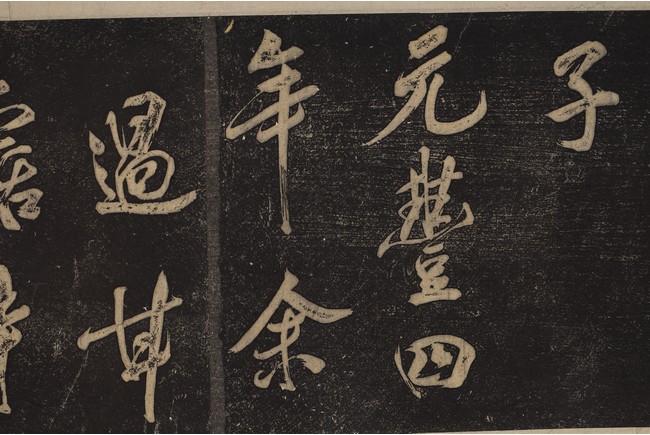 子
元豐四
年余
過甘